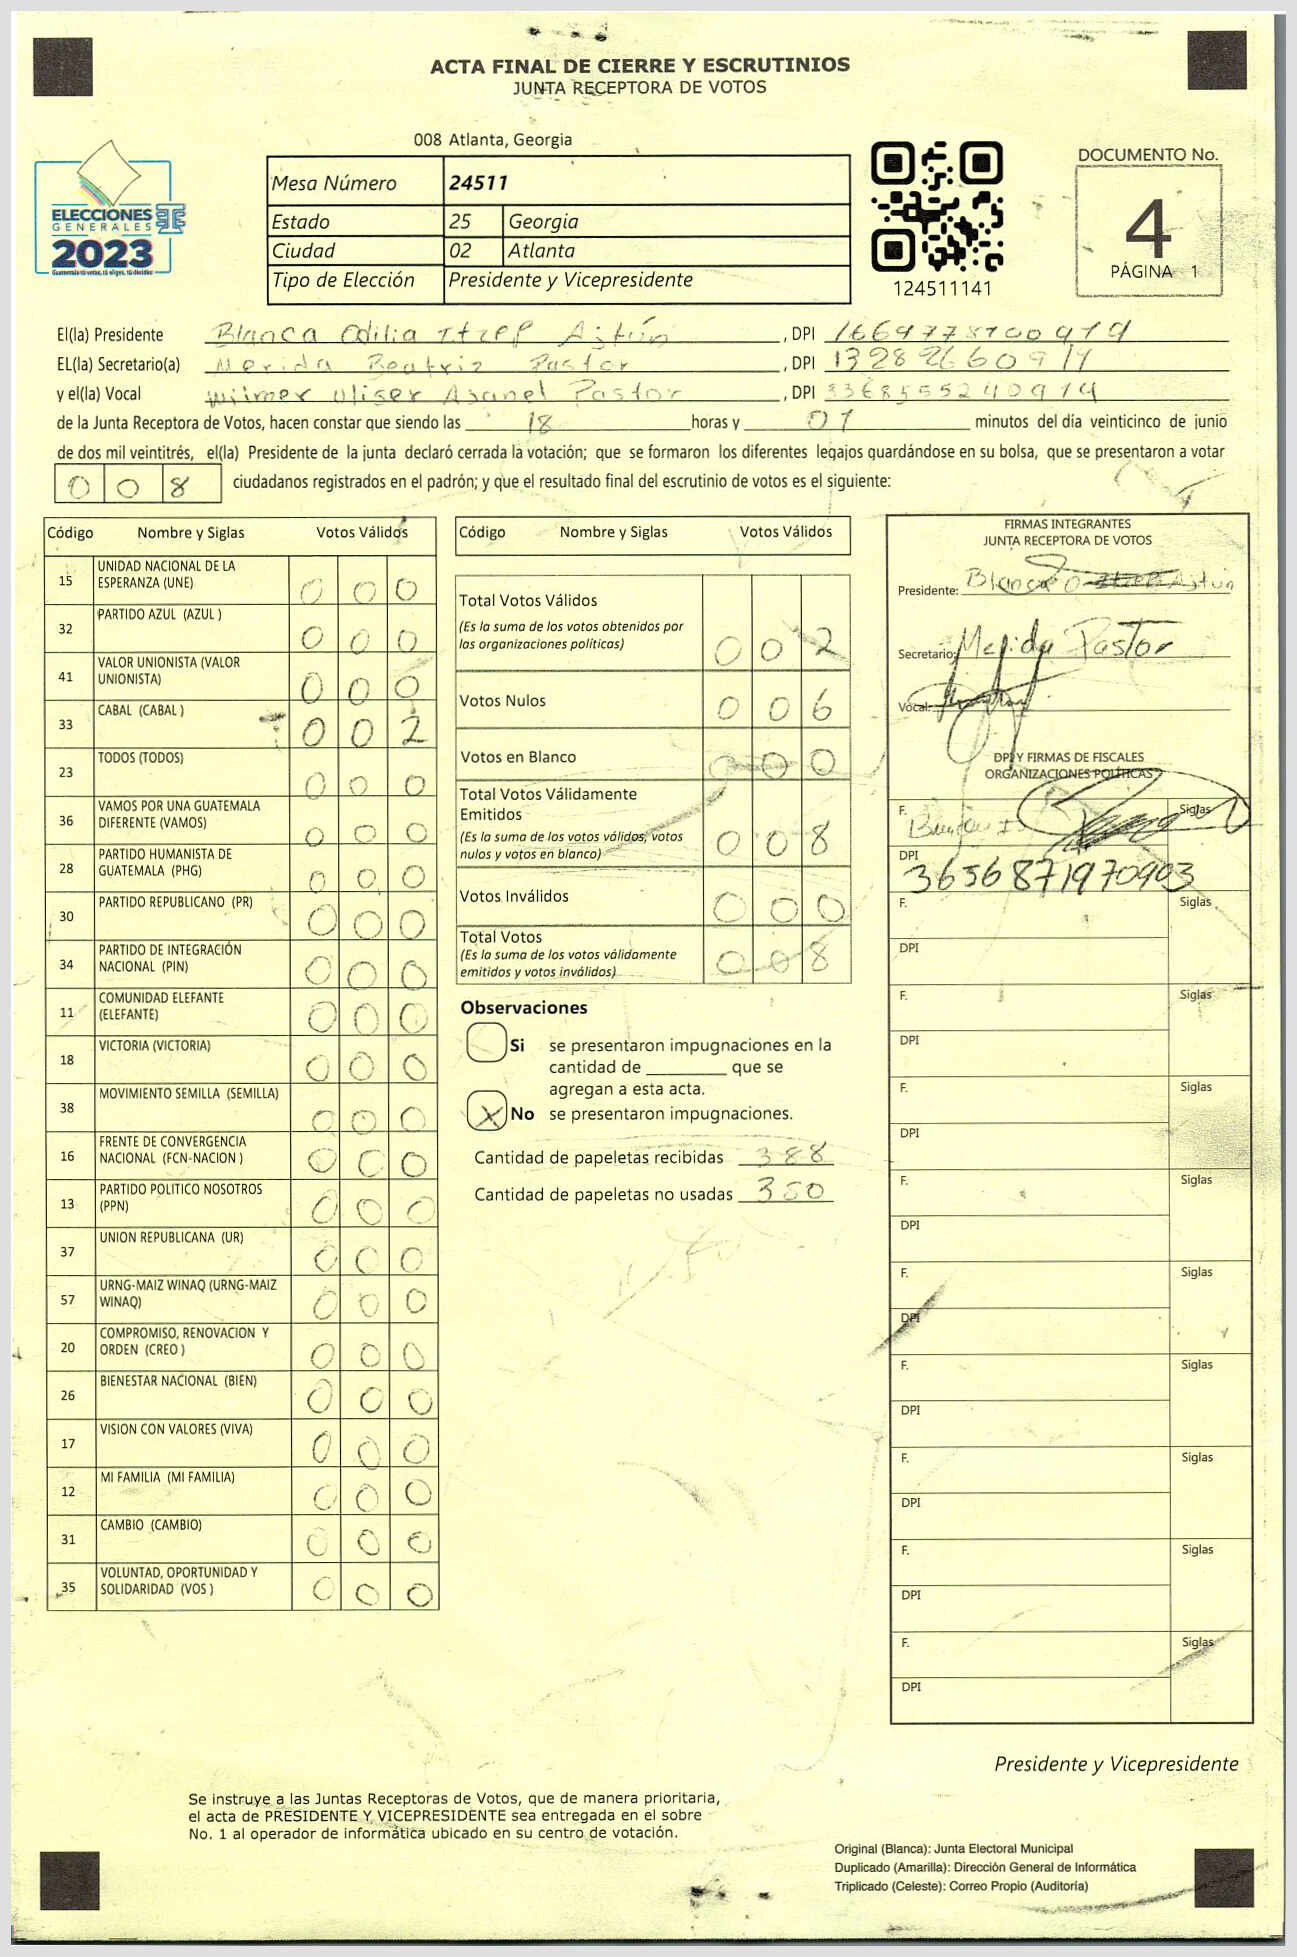 ACTA FINAL DE CIERRE Y ESCRUTINIOS
JUNTA RECEPTORA DE VOTOS
008 Atlanta, Georgia
Mesa Número 24511
Estado 25 Georgia
Ciudad 02 Atlanta
Tipo de Elección Presidente y Vicepresidente
ELECCIONES
GENERALES
2023
Guatemala tú votas, tú eliges, tú decides
124511141
DOCUMENTO No.
4
PÁGINA 1
El(la) Presidente Blanca Odilia , DPI
EL(la) Secretario(a) Merida Beatriz Pastor , DPI
y el(la) Vocal Wilmer Pastor , DPI
de la Junta Receptora de Votos, hacen constar que siendo las 18 horas y 07 minutos del día veinticinco de junio
de dos mil veintitrés, el(la) Presidente de la junta declaró cerrada la votación; que se formaron los diferentes legajos guardándose en su bolsa, que se presentaron a votar
0 0 8 ciudadanos registrados en el padrón; y que el resultado final del escrutinio de votos es el siguiente:
Código Nombre y Siglas Votos Válidos
15 UNIDAD NACIONAL DE LA
ESPERANZA (UNE) 0 0 0
32 PARTIDO AZUL (AZUL ) 0 0 0
41 VALOR UNIONISTA (VALOR
UNIONISTA) 0 0 0
33 CABAL (CABAL ) 0 0 2
23 TODOS (TODOS) 0 0 0
36 VAMOS POR UNA GUATEMALA
DIFERENTE (VAMOS) 0 0 0
28 PARTIDO HUMANISTA DE
GUATEMALA (PHG) 0 0 0
30 PARTIDO REPUBLICANO (PR) 0 0 0
34 PARTIDO DE INTEGRACIÓN
NACIONAL (PIN) 0 0 0
11 COMUNIDAD ELEFANTE
(ELEFANTE) 0 0 0
18 VICTORIA (VICTORIA) 0 0 0
38 MOVIMIENTO SEMILLA (SEMILLA) 0 0 0
16 FRENTE DE CONVERGENCIA
NACIONAL (FCN-NACION ) 0 0 0
13 PARTIDO POLITICO NOSOTROS
(PPN) 0 0 0
37 UNION REPUBLICANA (UR) 0 0 0
57 URNG-MAIZ WINAQ (URNG-MAIZ
WINAQ) 0 0 0
20 COMPROMISO, RENOVACION Y
ORDEN (CREO ) 0 0 0
26 BIENESTAR NACIONAL (BIEN) 0 0 0
17 VISION CON VALORES (VIVA) 0 0 0
12 MI FAMILIA (MI FAMILIA) 0 0 0
31 CAMBIO (CAMBIO) 0 0 0
35 VOLUNTAD, OPORTUNIDAD Y
SOLIDARIDAD (VOS ) 0 0 0
Código Nombre y Siglas Votos Válidos
Total Votos Válidos
(Es la suma de los votos obtenidos por
las organizaciones políticas) 0 0 2
Votos Nulos 0 0 6
Votos en Blanco 0 0 0
Total Votos Válidamente
Emitidos
(Es la suma de los votos válidos, votos
nulos y votos en blanco) 0 0 8
Votos Inválidos 0 0 0
Total Votos
(Es la suma de los votos válidamente
emitidos y votos inválidos) 0 0 8
Observaciones
Si se presentaron impugnaciones en la
cantidad de ________ que se
agregan a esta acta.
X No se presentaron impugnaciones.
Cantidad de papeletas recibidas 388
Cantidad de papeletas no usadas 350
FIRMAS INTEGRANTES
JUNTA RECEPTORA DE VOTOS
Presidente: Blanca O
Secretario: Merida Pastor
Vocal:
DPI Y FIRMAS DE FISCALES
ORGANIZACIONES POLÍTICAS
F. Siglas
DPI
3656871970903
F. Siglas
DPI
F. Siglas
DPI
F. Siglas
DPI
F. Siglas
DPI
F. Siglas
DPI
F. Siglas
DPI
F. Siglas
DPI
F. Siglas
DPI
F. Siglas
DPI
Presidente y Vicepresidente
Se instruye a las Juntas Receptoras de Votos, que de manera prioritaria,
el acta de PRESIDENTE Y VICEPRESIDENTE sea entregada en el sobre
No. 1 al operador de informática ubicado en su centro de votación.
Original (Blanca): Junta Electoral Municipal
Duplicado (Amarilla): Dirección General de Informática
Triplicado (Celeste): Correo Propio (Auditoría)